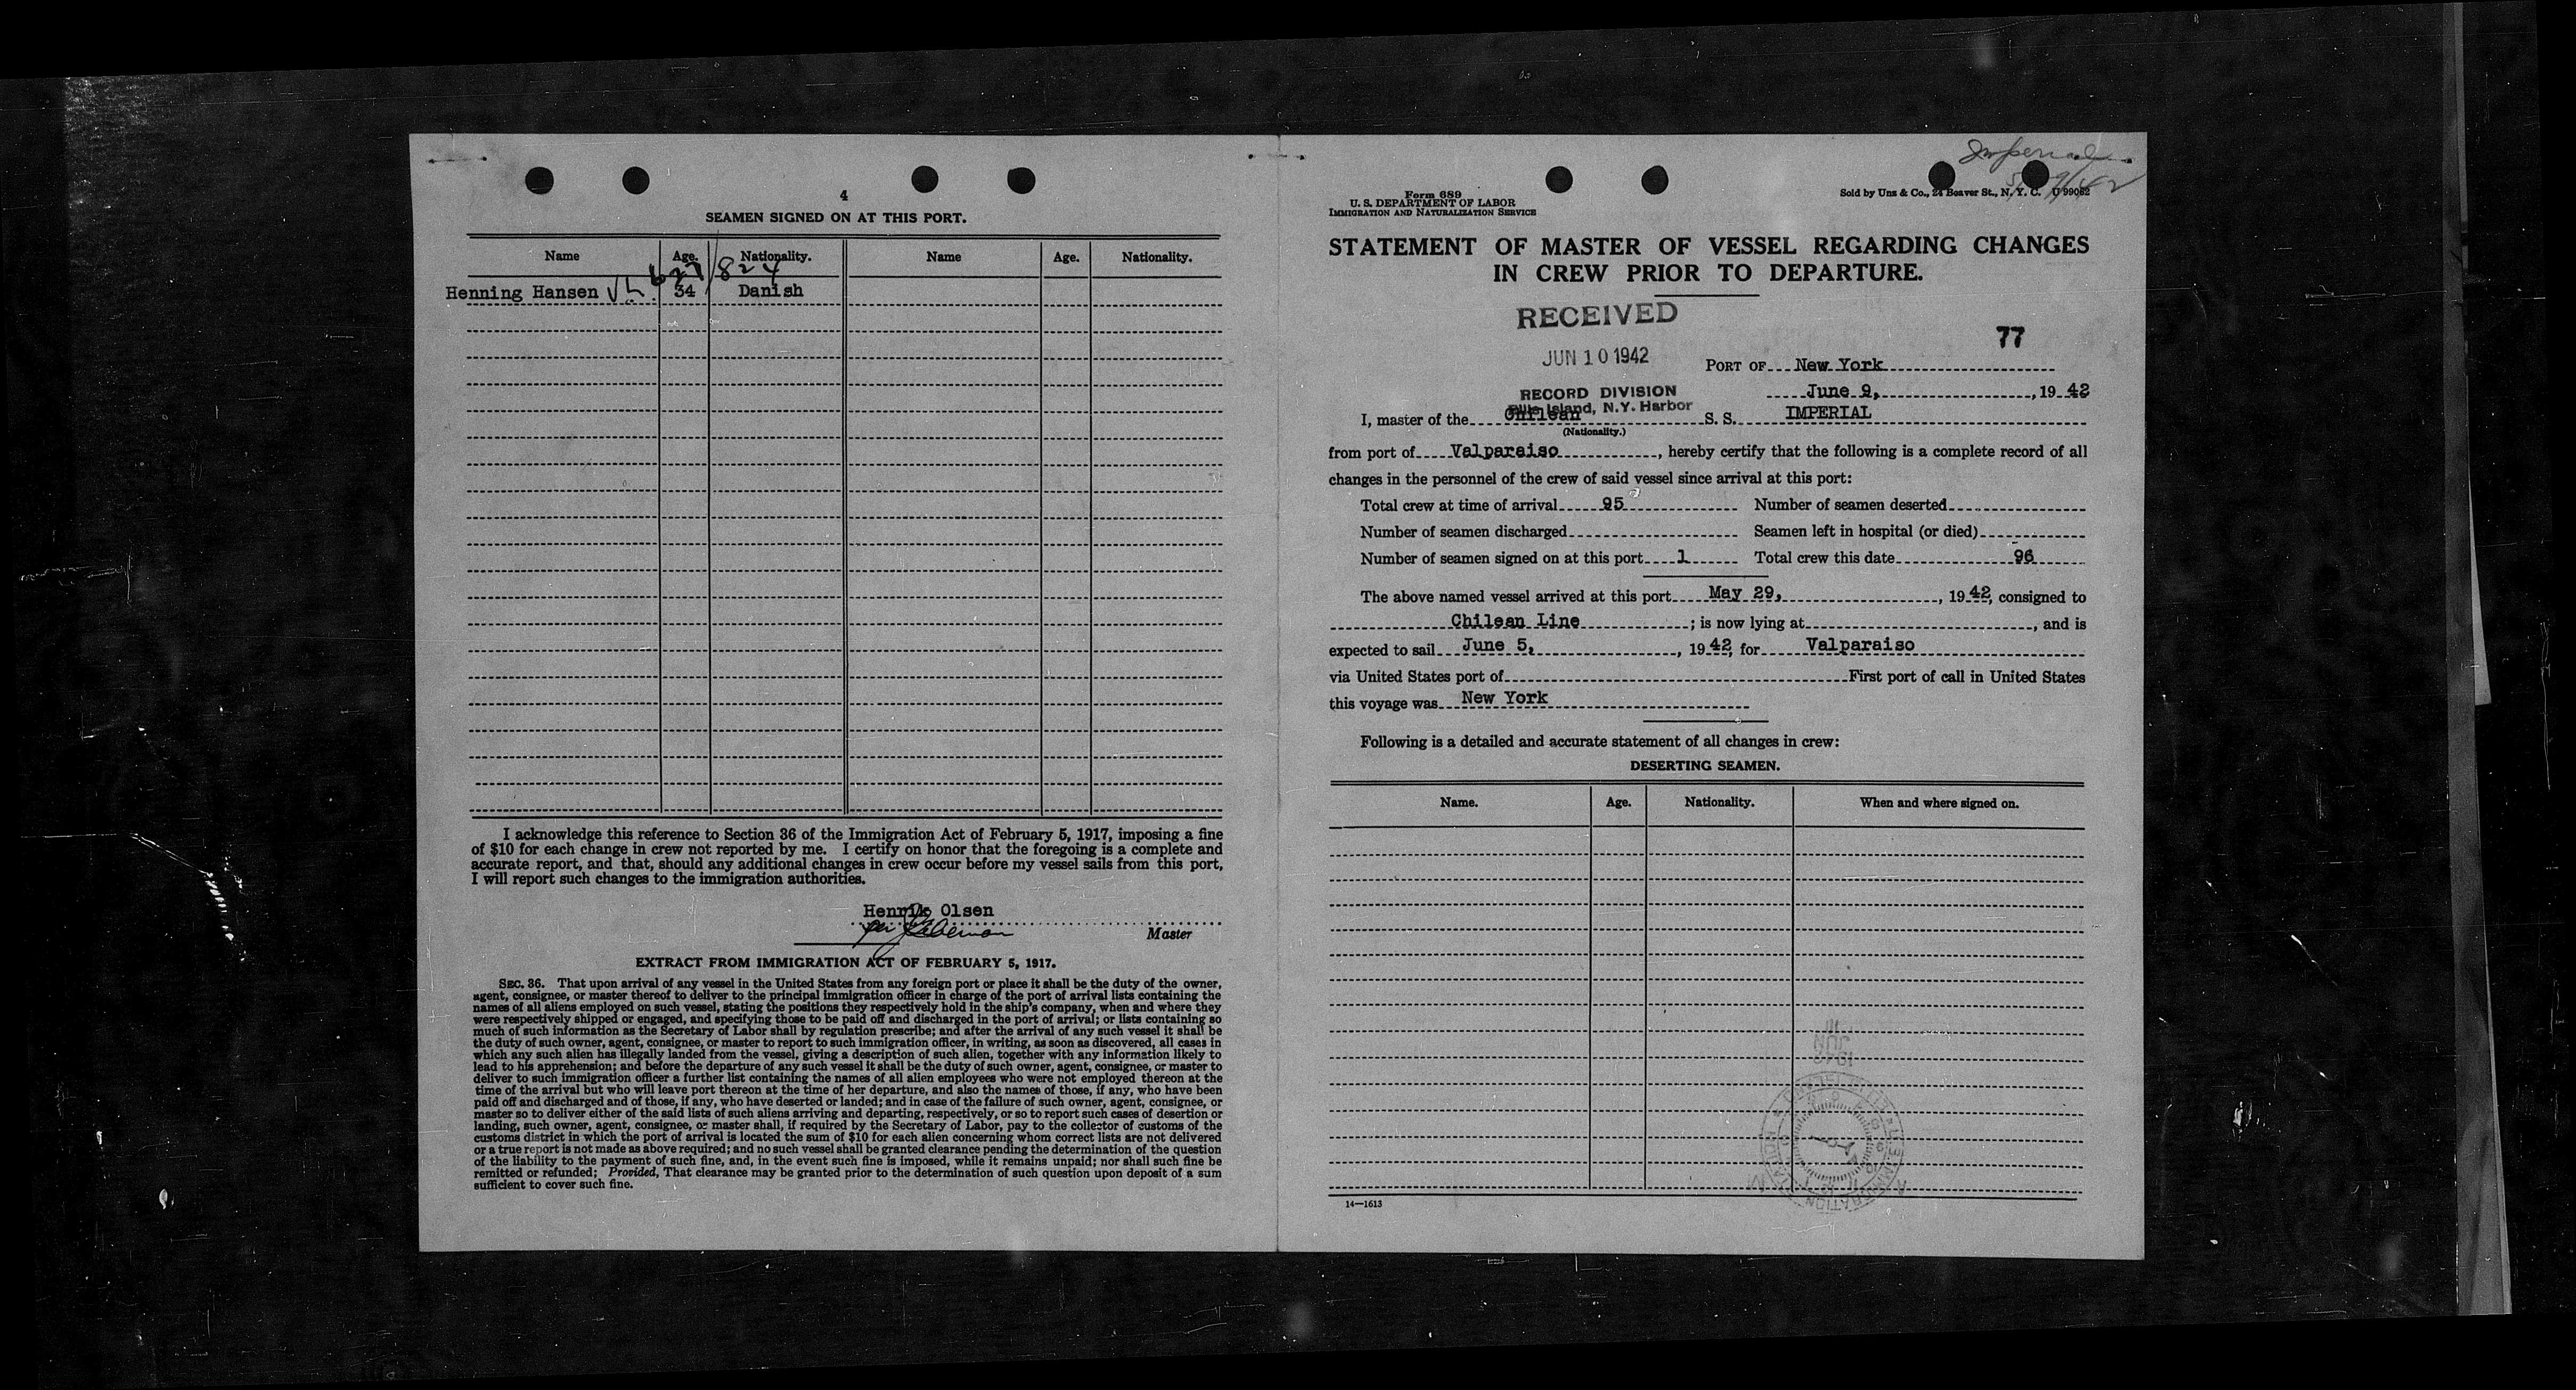 4
SEAMEN SIGNED ON AT THIS PORT.
Name Age. Nationality. Name Age. Nationality.
627/824
Henning Hansen 34 Danish
I acknowledge this reference to Section 36 of the Immigration Act of February 5, 1917, imposing a fine
of $10 for each change in crew not reported by me. I certify on honor that the foregoing is a complete and
accurate report, and that, should any additional changes in crew occur before my vessel sails from this port,
I will report such changes to the immigration authorities.
Henrik Olsen
per
Master
EXTRACT FROM IMMIGRATION ACT OF FEBRUARY 5, 1917.
SEC. 36. That upon arrival of any vessel in the United States from any foreign port or place it shall be the duty of the owner,
agent, consignee, or master thereof to deliver to the principal immigration officer in charge of the port of arrival lists containing the
names of all aliens employed on such vessel, stating the positions they respectively hold in the ship's company, when and where they
were respectively shipped or engaged, and specifying those to be paid off and discharged in the port of arrival; or lists containing so
much of such information as the Secretary of Labor shall by regulation prescribe; and after the arrival of any such vessel it shall be
the duty of such owner, agent, consignee, or master to report to such immigration officer, in writing, as soon as discovered, all cases in
which any such alien has illegally landed from the vessel, giving a description of such alien, together with any information likely to
lead to his apprehension; and before the departure of any such vessel it shall be the duty of such owner, agent, consignee, or master to
deliver to such immigration officer a further list containing the names of all alien employees who were not employed thereon at the
time of the arrival but who will leave port thereon at the time of her departure, and also the names of those, if any, who have been
paid off and discharged and of those, if any, who have deserted or landed; and in case of the failure of such owner, agent, consignee, or
master so to deliver either of the said lists of such aliens arriving and departing, respectively, or so to report such cases of desertion or
landing, such owner, agent, consignee, or master shall, if required by the Secretary of Labor, pay to the collector of customs of the
customs district in which the port of arrival is located the sum of $10 for each alien concerning whom correct lists are not delivered
or a true report is not made as above required; and no such vessel shall be granted clearance pending the determination of the question
of the liability to the payment of such fine, and, in the event such fine is imposed, while it remains unpaid; nor shall such fine be
remitted or refunded; Provided, That clearance may be granted prior to the determination of such question upon deposit of a sum
sufficient to cover such fine.
Imperial
Form 689
U. S. DEPARTMENT OF LABOR
IMMIGRATION AND NATURALIZATION SERVICE
Sold by Unz & Co., 24 Beaver St., N. Y. C. U 99062
STATEMENT OF MASTER OF VESSEL REGARDING CHANGES
IN CREW PRIOR TO DEPARTURE.
RECEIVED
JUN 10 1942
RECORD DIVISION
Ellis Island, N.Y. Harbor
77
PORT OF New York
June 9, , 19 42
I, master of the Chilean S. S. IMPERIAL
(Nationality.)
from port of Valparaiso , hereby certify that the following is a complete record of all
changes in the personnel of the crew of said vessel since arrival at this port:
Total crew at time of arrival 95 Number of seamen deserted
Number of seamen discharged Seamen left in hospital (or died)
Number of seamen signed on at this port 1 Total crew this date 96
The above named vessel arrived at this port May 29, , 19 42, consigned to
Chilean Line ; is now lying at , and is
expected to sail June 5, , 19 42, for Valparaiso
via United States port of First port of call in United States
this voyage was New York
Following is a detailed and accurate statement of all changes in crew:
DESERTING SEAMEN.
Name. Age. Nationality. When and where signed on.
14—1613